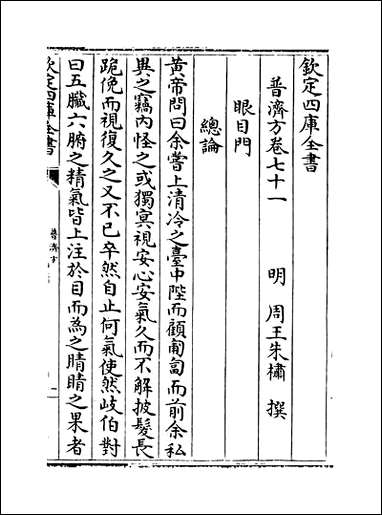 欽定四庫全書
普濟方卷七十一
明 周王朱橚 撰
眼目門
總論
黄帝問曰余嘗上清冷之臺中陛而顧匍匐而前余私
異之竊内怪之或獨㝠視安心安氣久而不解披髮長
跪俛而視復久之又不已卒然自止何氣使然歧伯對
曰五臟六腑之精氣皆上注於目而為之睛睛之果者
欽定四庫全書
普濟方